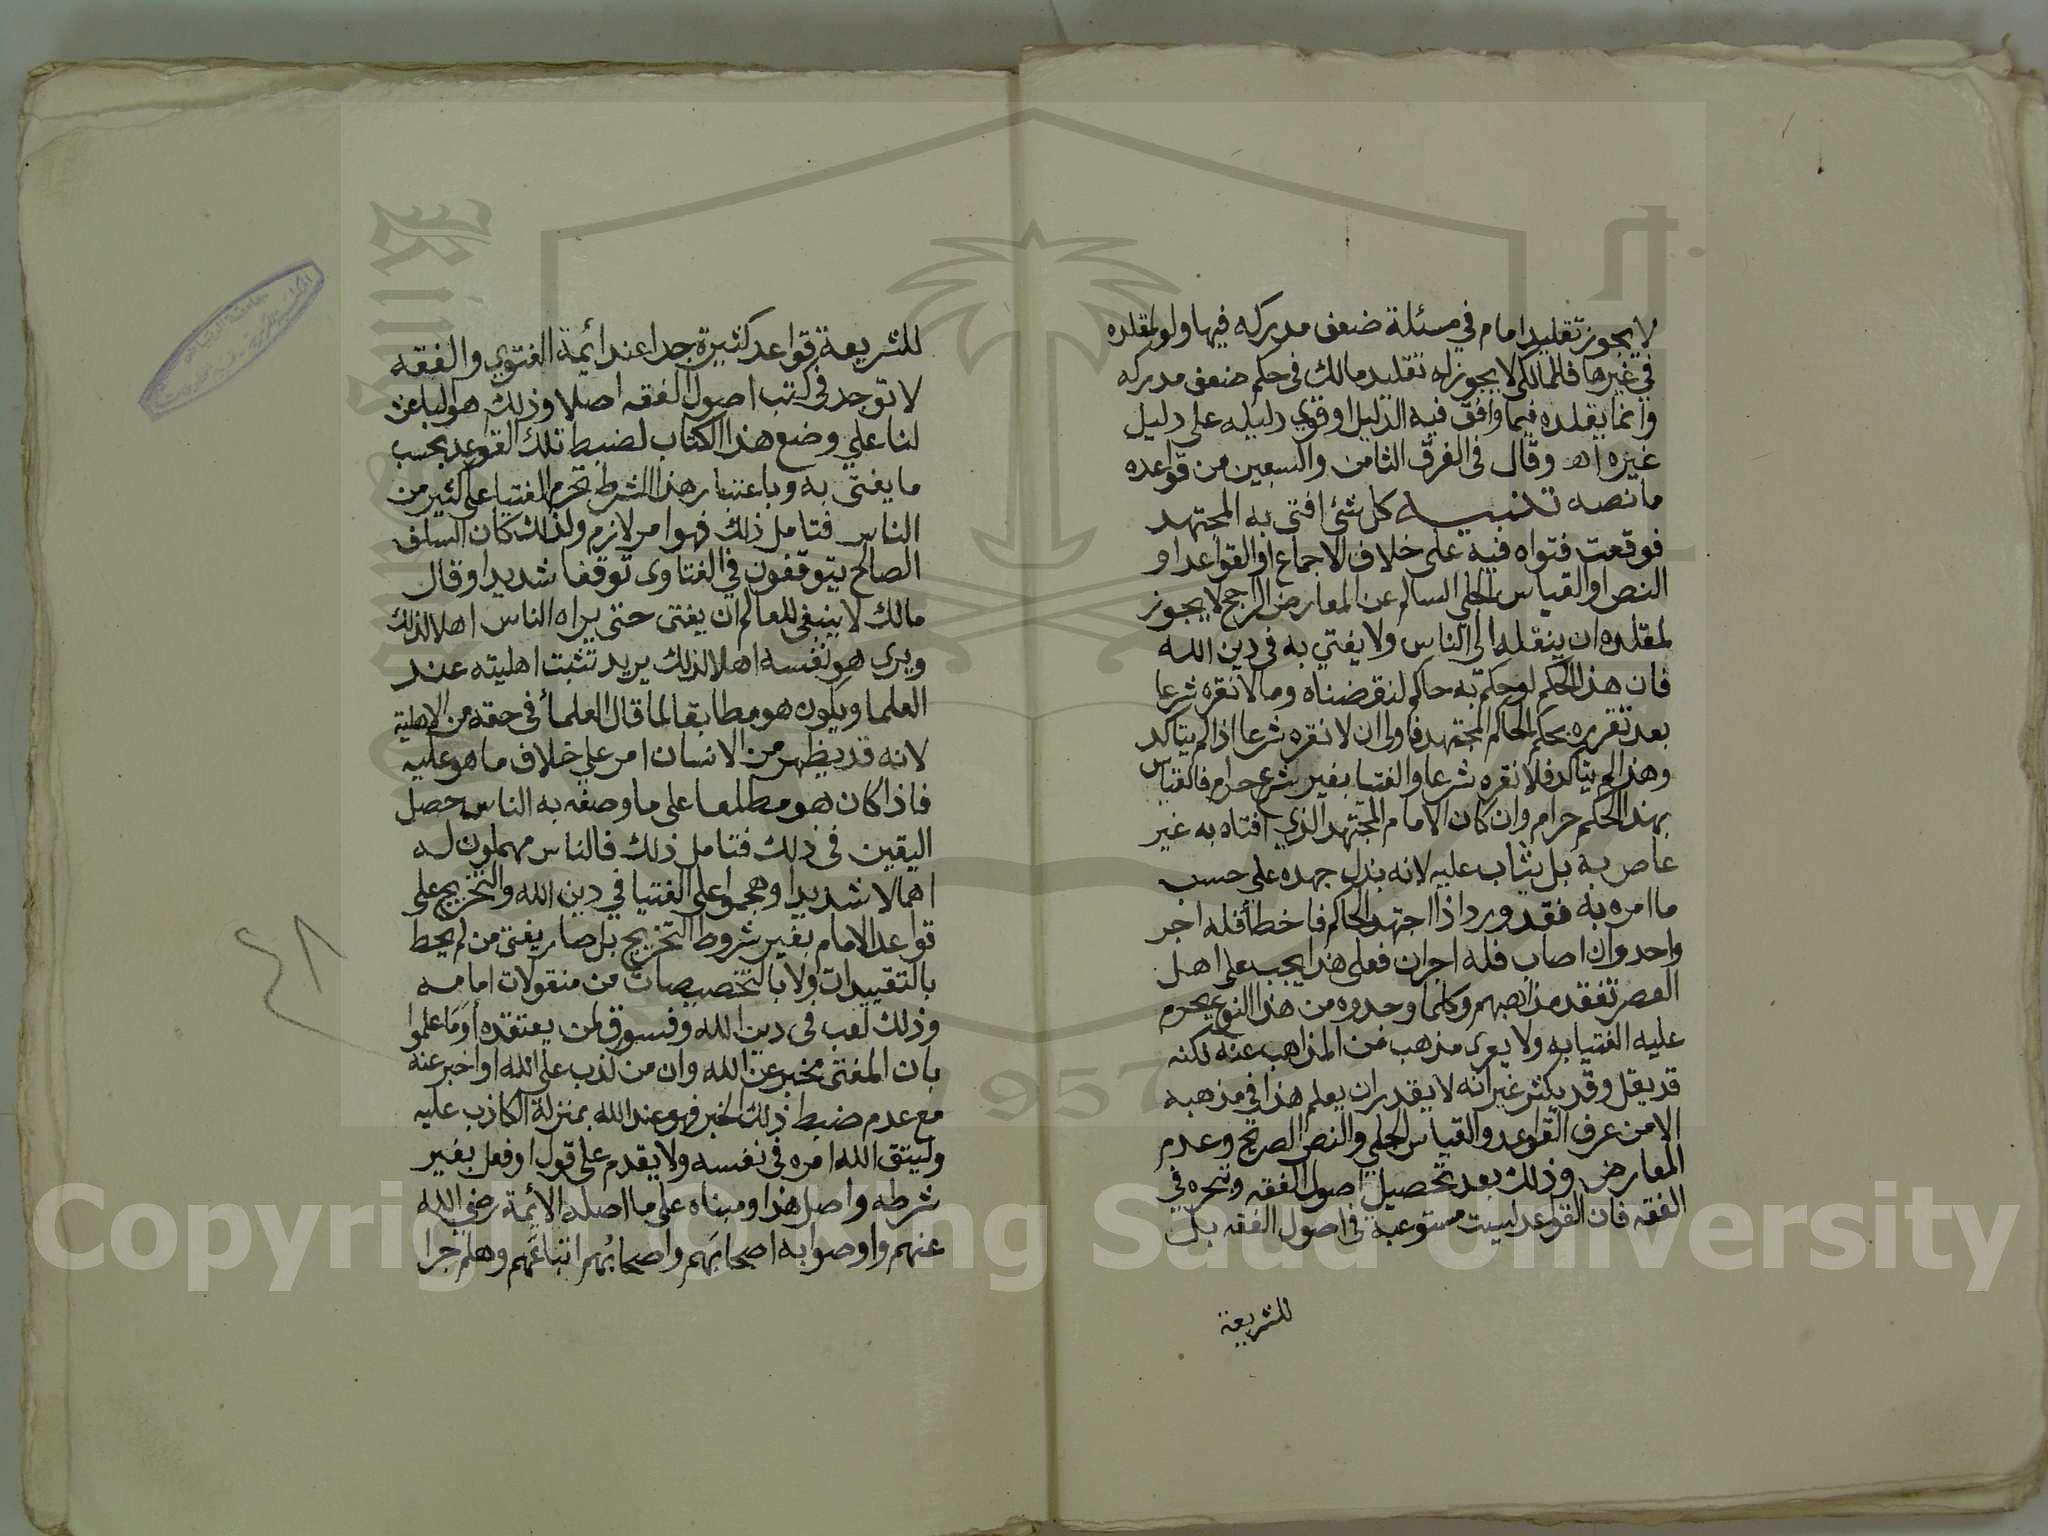 لا يجوز تقليد امام في مسئلة ضعف مدركه فيها ولو لمقلده
في غيرها فالمالكي لا يجوز له تقليد مالك في حكم ضعف مدركه
وانما يقلده فيما وافق فيه الدليل او قوي دليله على دليل
غيره اهـ وقال في الفرق الثامن والسبعين من قواعده
ما نصه تنبيه كل شئ افتى به المجتهد
فوقعت فتواه فيه على خلاف الاجماع او القواعد او
النص او القياس الجلي السالم عن المعارض الراجح لا يجوز
لمقلده ان ينقله الى الناس ولا يفتي به في دين الله
فان هذا الحكم لو حكم به حاكم لنقضناه وما لا نقره شرعا
بعد تقرره بحكم الحاكم المجتهد فاولى ان لا نقره شرعا اذا لم يتاكد
وهذا لم يتاكد فلا نقره شرعا والفتيا بغير شرع حرام فالفتيا
بهذا الحكم حرام وان كان الامام المجتهد الذي افتاه به غير
عاص به بل يثاب عليه لانه بذل جهده علي حسب
ما امره به فقد ورد اذا اجتهد الحاكم فاخطأ فله اجر
واحد وان اصاب فله اجران فعلى هذا يجب على اهل
العصر تفقد مذاهبهم وكلما وجدوه من هذا النوع يحرم
عليه الفتيا به ولا يعرى مذهب من المذاهب عنه لكنه
قد يقل وقد يكثر غير انه لا يقدر ان يعلم هذا في مذهبه
الا من عرف القواعد والقياس الجلي والنص الصريح وعدم
المعارض وذلك بعد تحصيل اصول الفقه وتبحره في
الفقه فان القواعد ليست مستوعبة في اصول الفقه بل
للشريعة
للشريعة قواعد كثيرة جدا عند أيمة الفتوي والفقه
لا توجد في كتب اصول الفقه اصلا وذلك هو الباعث
لنا علي وضع هذا الكتاب لضبط تلك القواعد بحسب
ما يفتى به وباعتبار هذا الشرط تحرم الفتيا على كثير من
الناس فتامل ذلك فهو امر لازم ولذلك كان السلف
الصالح يتوقفون في الفتاوى توقفا شديدا وقال
مالك لا ينبغي للعالم ان يفتي حتى يراه الناس اهلا لذلك
ويرى هو نفسه اهلا لذلك يريد تثبت اهليته عند
العلما ويكون هو مطابقا لما قال العلماء في حقه من الاهلية
لانه قد يظهر من الانسان امر علي خلاف ما هو عليه
فاذا كان هو مطلعا على ما وصفه به الناس حصل
اليقين في ذلك فتامل ذلك فالناس مهملون له
اهمالا شديدا وهجموا على الفتيا في دين الله والتخريج على
قواعد الامام بغير شروط التخريج بل صار يفتى من لم يحط
بالتقييدات ولا بالتخصيصات من منقولات امامه
وذلك لعب في دين الله وفسوق لمن يعتقده أوَما علموا
بان المفتى مخبر عن الله وان من كذب على الله او اخبر عنه
مع عدم ضبط ذلك الخبر فهو عند الله بمنزلة الكاذب عليه
وليتق الله امره في نفسه ولا يقدم على قول او فعل بغير
شرطه واصل هذا ومبناه على ما اصله الأيمة رضي الله
عنهم واوصوا به اصحابَهم واصحابُهم اتباعَهم وهلم جرا
٤٨
Copyright © King Saud University
King Saud
1957